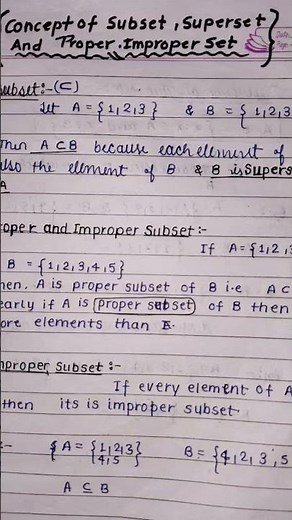 Concept of Subset, Superset
And Proper, Improper Set
ubset:-(⊂)
Let A = {1,2,3} & B = {1,2,3
Then A ⊂ B because each element of
lso the element of B & B is Supers
A
oper and Improper Subset:-
If A = {1,2,3
B = {1,2,3,4,5}
hen, A is proper subset of B i.e A ⊂
early if A is proper subset of B then
ore elements than
mproper Subset :-
If every element of A
then its is improper subset.
:- A = {1,2,3 B = {4,2,3,5
4,5}
A ⊆ B